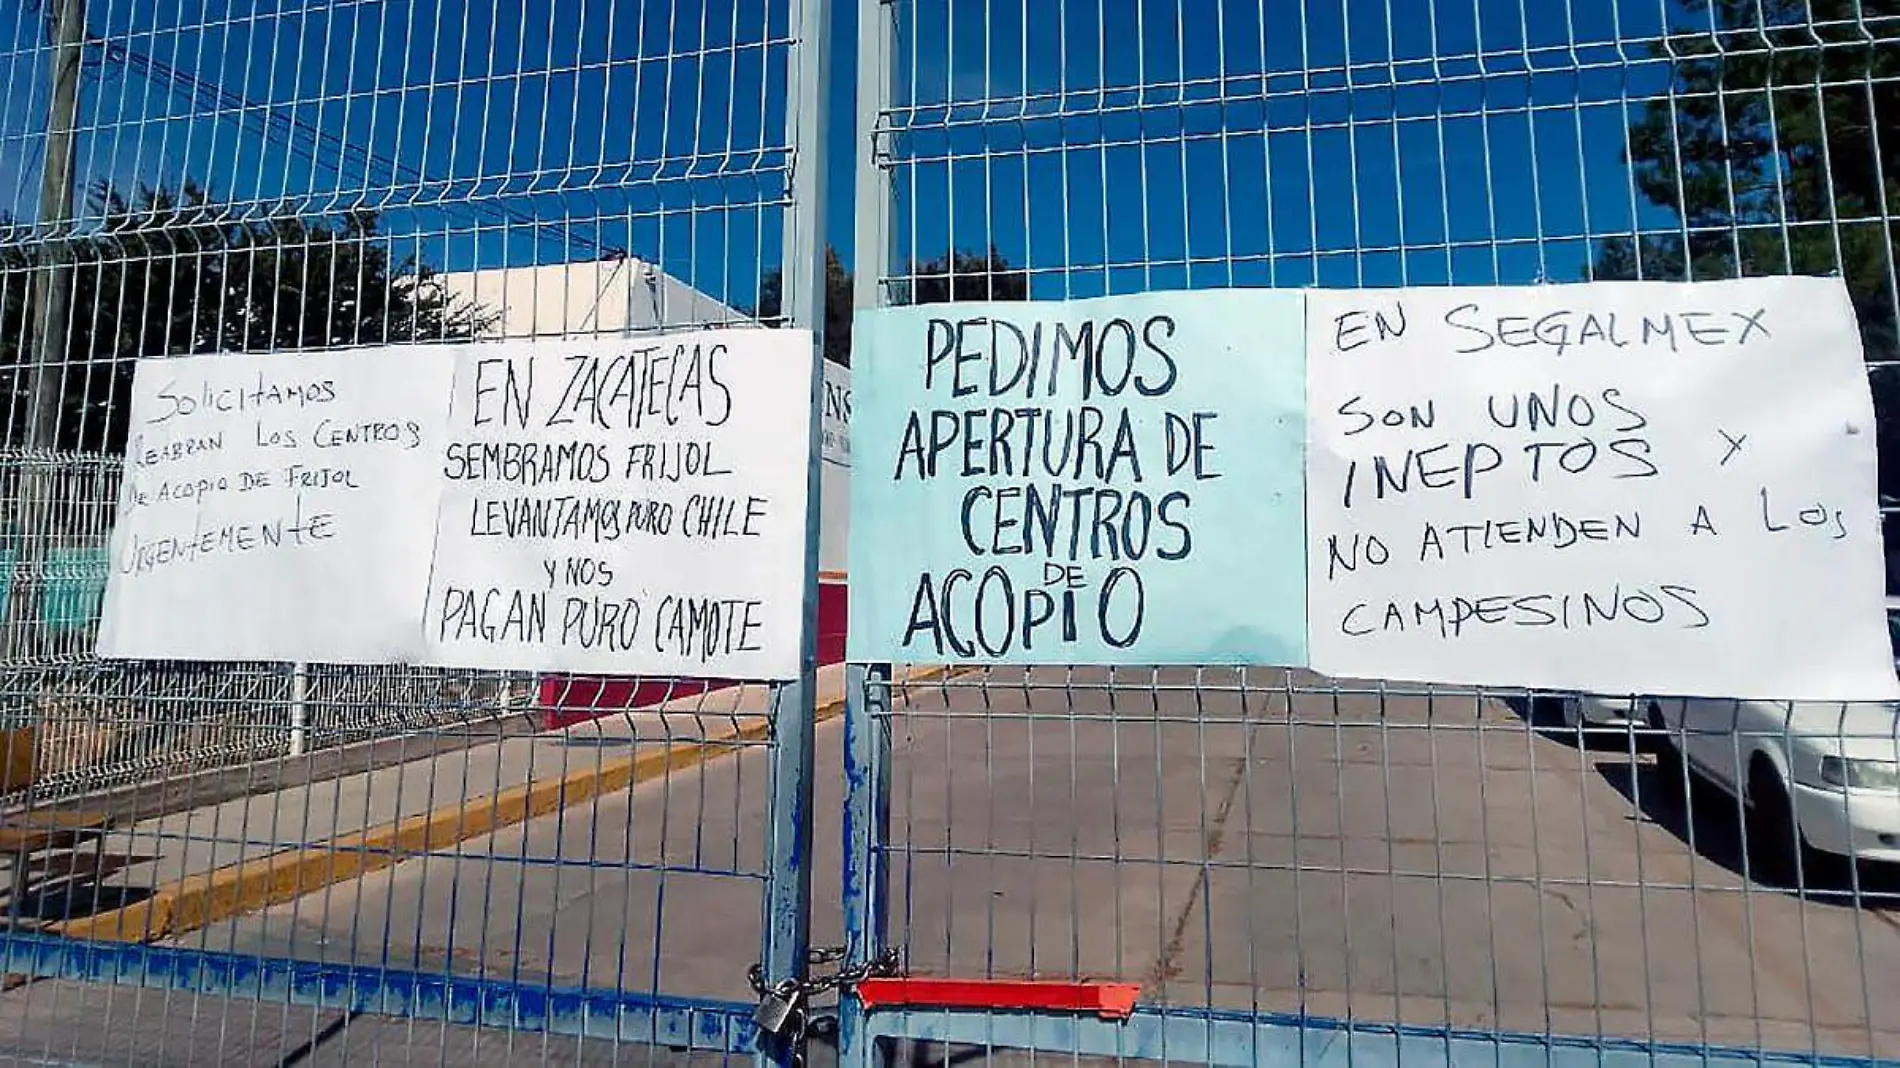 SOLICITAMOS
REABRAN LOS CENTROS
DE ACOPIO DE FRIJOL
URGENTEMENTE
EN ZACATECAS
SEMBRAMOS FRIJOL
LEVANTAMOS PURO CHILE
Y NOS
PAGAN PURO CAMOTE
NS
PEDIMOS
APERTURA DE
CENTROS
DE
ACOPIO
EN SEGALMEX
SON UNOS
INEPTOS X
NO ATIENDEN A LOS
CAMPESINOS